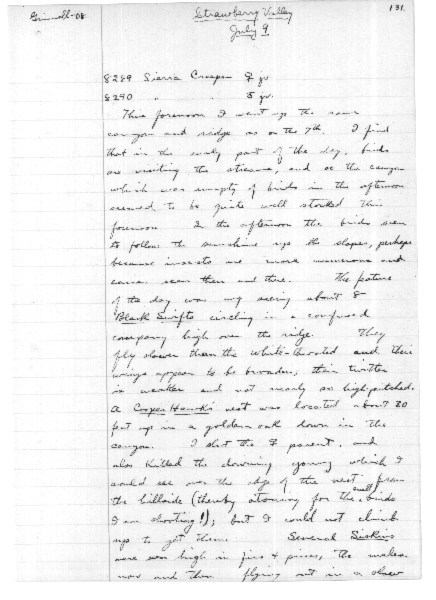 Grinnell-08
Strawberry Valley
131.
July 9
8289 Sierra Creeper ♀ jv.
8290 " " 5 jv.
This forenoon I went up the same
canyon and ridge as on the 7th. I find
that in the early part of the day, birds
are visiting the streams, and so the canyon
which was empty of birds in the afternoon
seemed to be quite well stocked this
forenoon. In the afternoon the birds seem
to follow the sunshine up the slopes, perhaps
because insects are more numerous and
easier seen then and there. The feature
of the day was my seeing about 8
Black Swifts circling in a confused
company high over the ridge. They
fly slower than the White-throated and their
wings appear to be broader; their twitter
is weaker and not nearly so high-pitched.
A Cooper Hawk's nest was located about 20
feet up in a golden oak down in the
canyon. I shot the ♀ parent, and
also killed the downy young which I
could see over the edge of the nest from
the hillside (thereby atoning for the small birds
I am shooting!); but I could not climb
up to get them. Several Siskins
were seen high in firs & pines, the males
now and then flying out in a slow